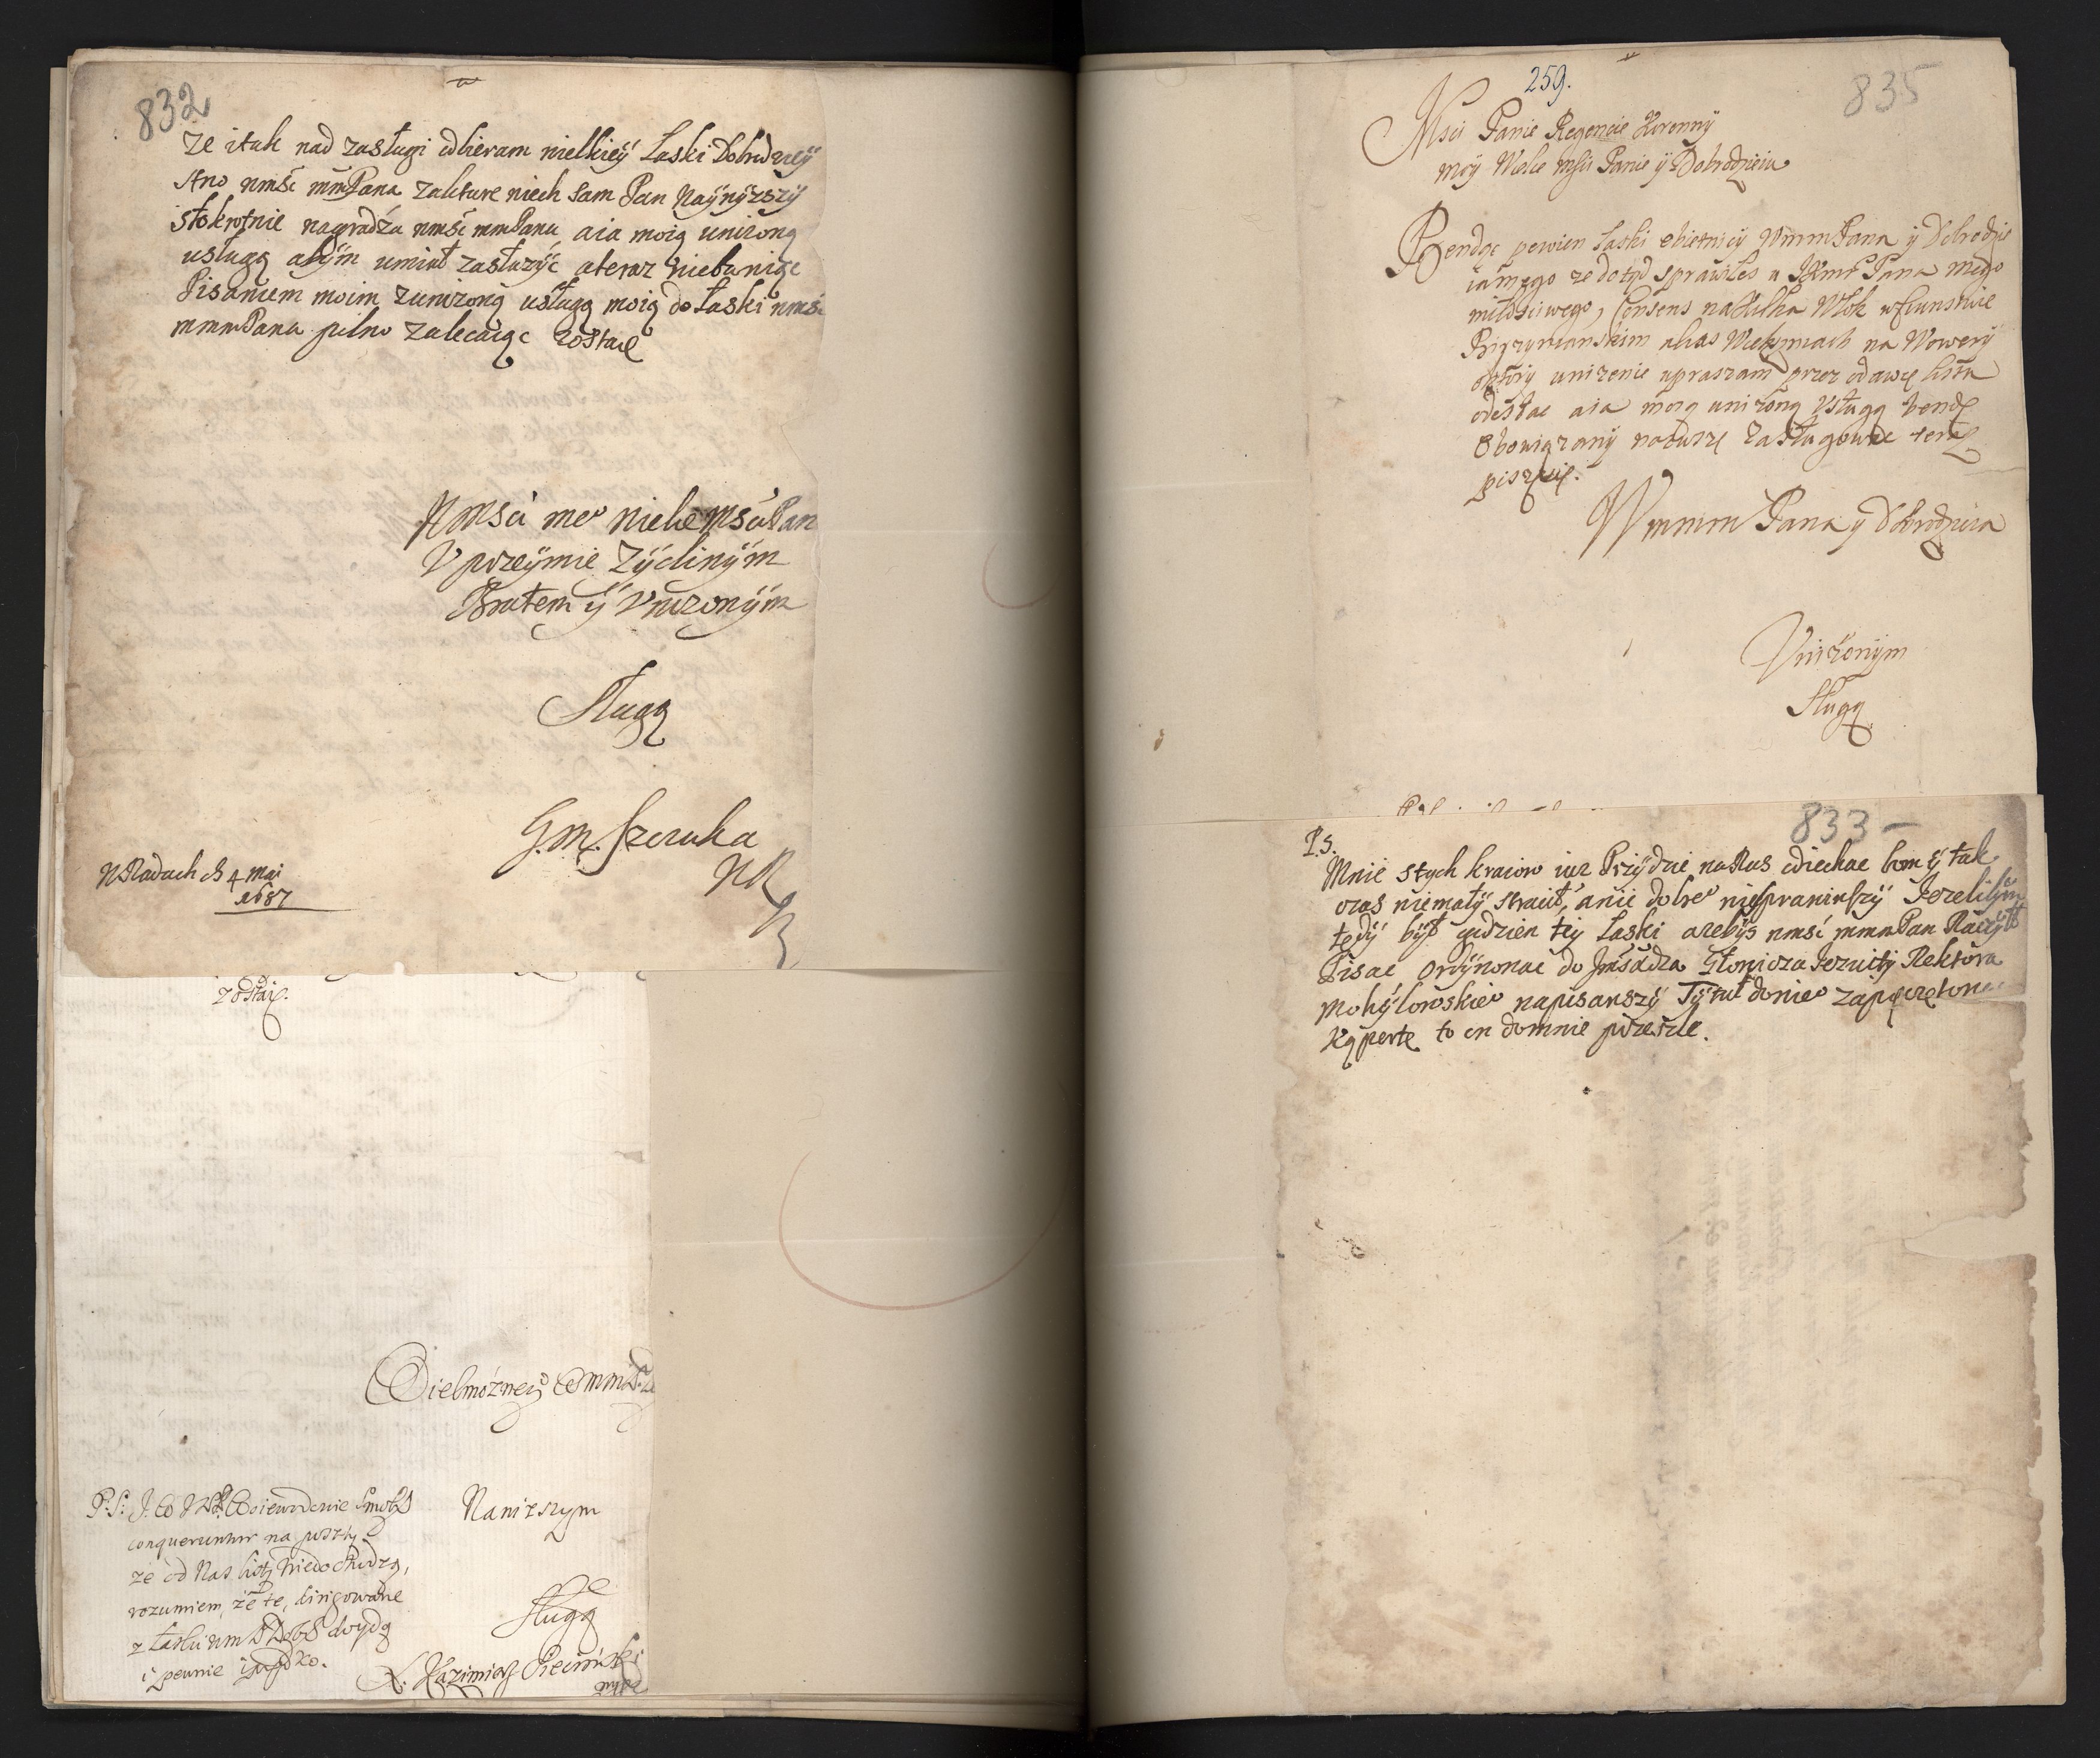 832
Ze itak nad zasługi odbieram wielkieÿ Łaski Dobrodzieÿ
stwo wmści mmPana zakture niech sam Pan Naÿwÿzszÿ
stokrotnie nagradza wmści mmPanu aia moią unizoną
usługą abÿm umiał zasłuzÿć ateraz niebawiąc
Pisaniem moim zunizoną usługą moią do łaski wmści
mmmPana pilno zalecaiąc zostaię
Wmści me° wielce mści Pan
Vprzeÿmie Zÿcliwÿm
Bratem ÿ Vnizonÿm
Sługą
G. M. Szczuka
WRadach d 4 Maj
1687
zostaię.
Wielmożneg° WmmP.
Naniższym
Sługą
X. Kazimierz
P.S: J. W J Woiewodowie
conqueruntur na posztę
że od Nas listy niedochodzą,
rozumiem, że te, dirigowane
z łaski wm doydą
i pewnie
259.
835
Mści Panie Regencie Koronny
moy Wielce Mści Panie ÿ Dobrodzieiu
Bendąc pewien łaski obietnicy WmmPana ÿ Dobrodzie
ia mego ze dotyd sprawiłes u Pana mego
miłościwego, Consens na kilka Włok
alias na Wowery
ktory unizenie upraszam przez odawcę listu
odesłac aia moią unizoną Vsługą bendę
Obowiązanÿ zasługowac
piszę się.
Wmmm Pana y Dobrodzieia
Vniżonym
Sługą
833 -
P.S.
Mnie stych kraiow iuz Prziÿdzie naRus odiechac bom ÿ tak
czas niemałÿ stracił, anic dobre° niesprawiwszÿ Jezelibÿm
tedÿ bÿł godzien teÿ Łaski azebÿs wmść mmmPan Raczÿł
Pisac do Jmści Xdza Jezuitÿ Rektora
Mohÿlowskie° napisawszÿ Tÿtuł donie° zapieczętowa
to on domnie przeszle.